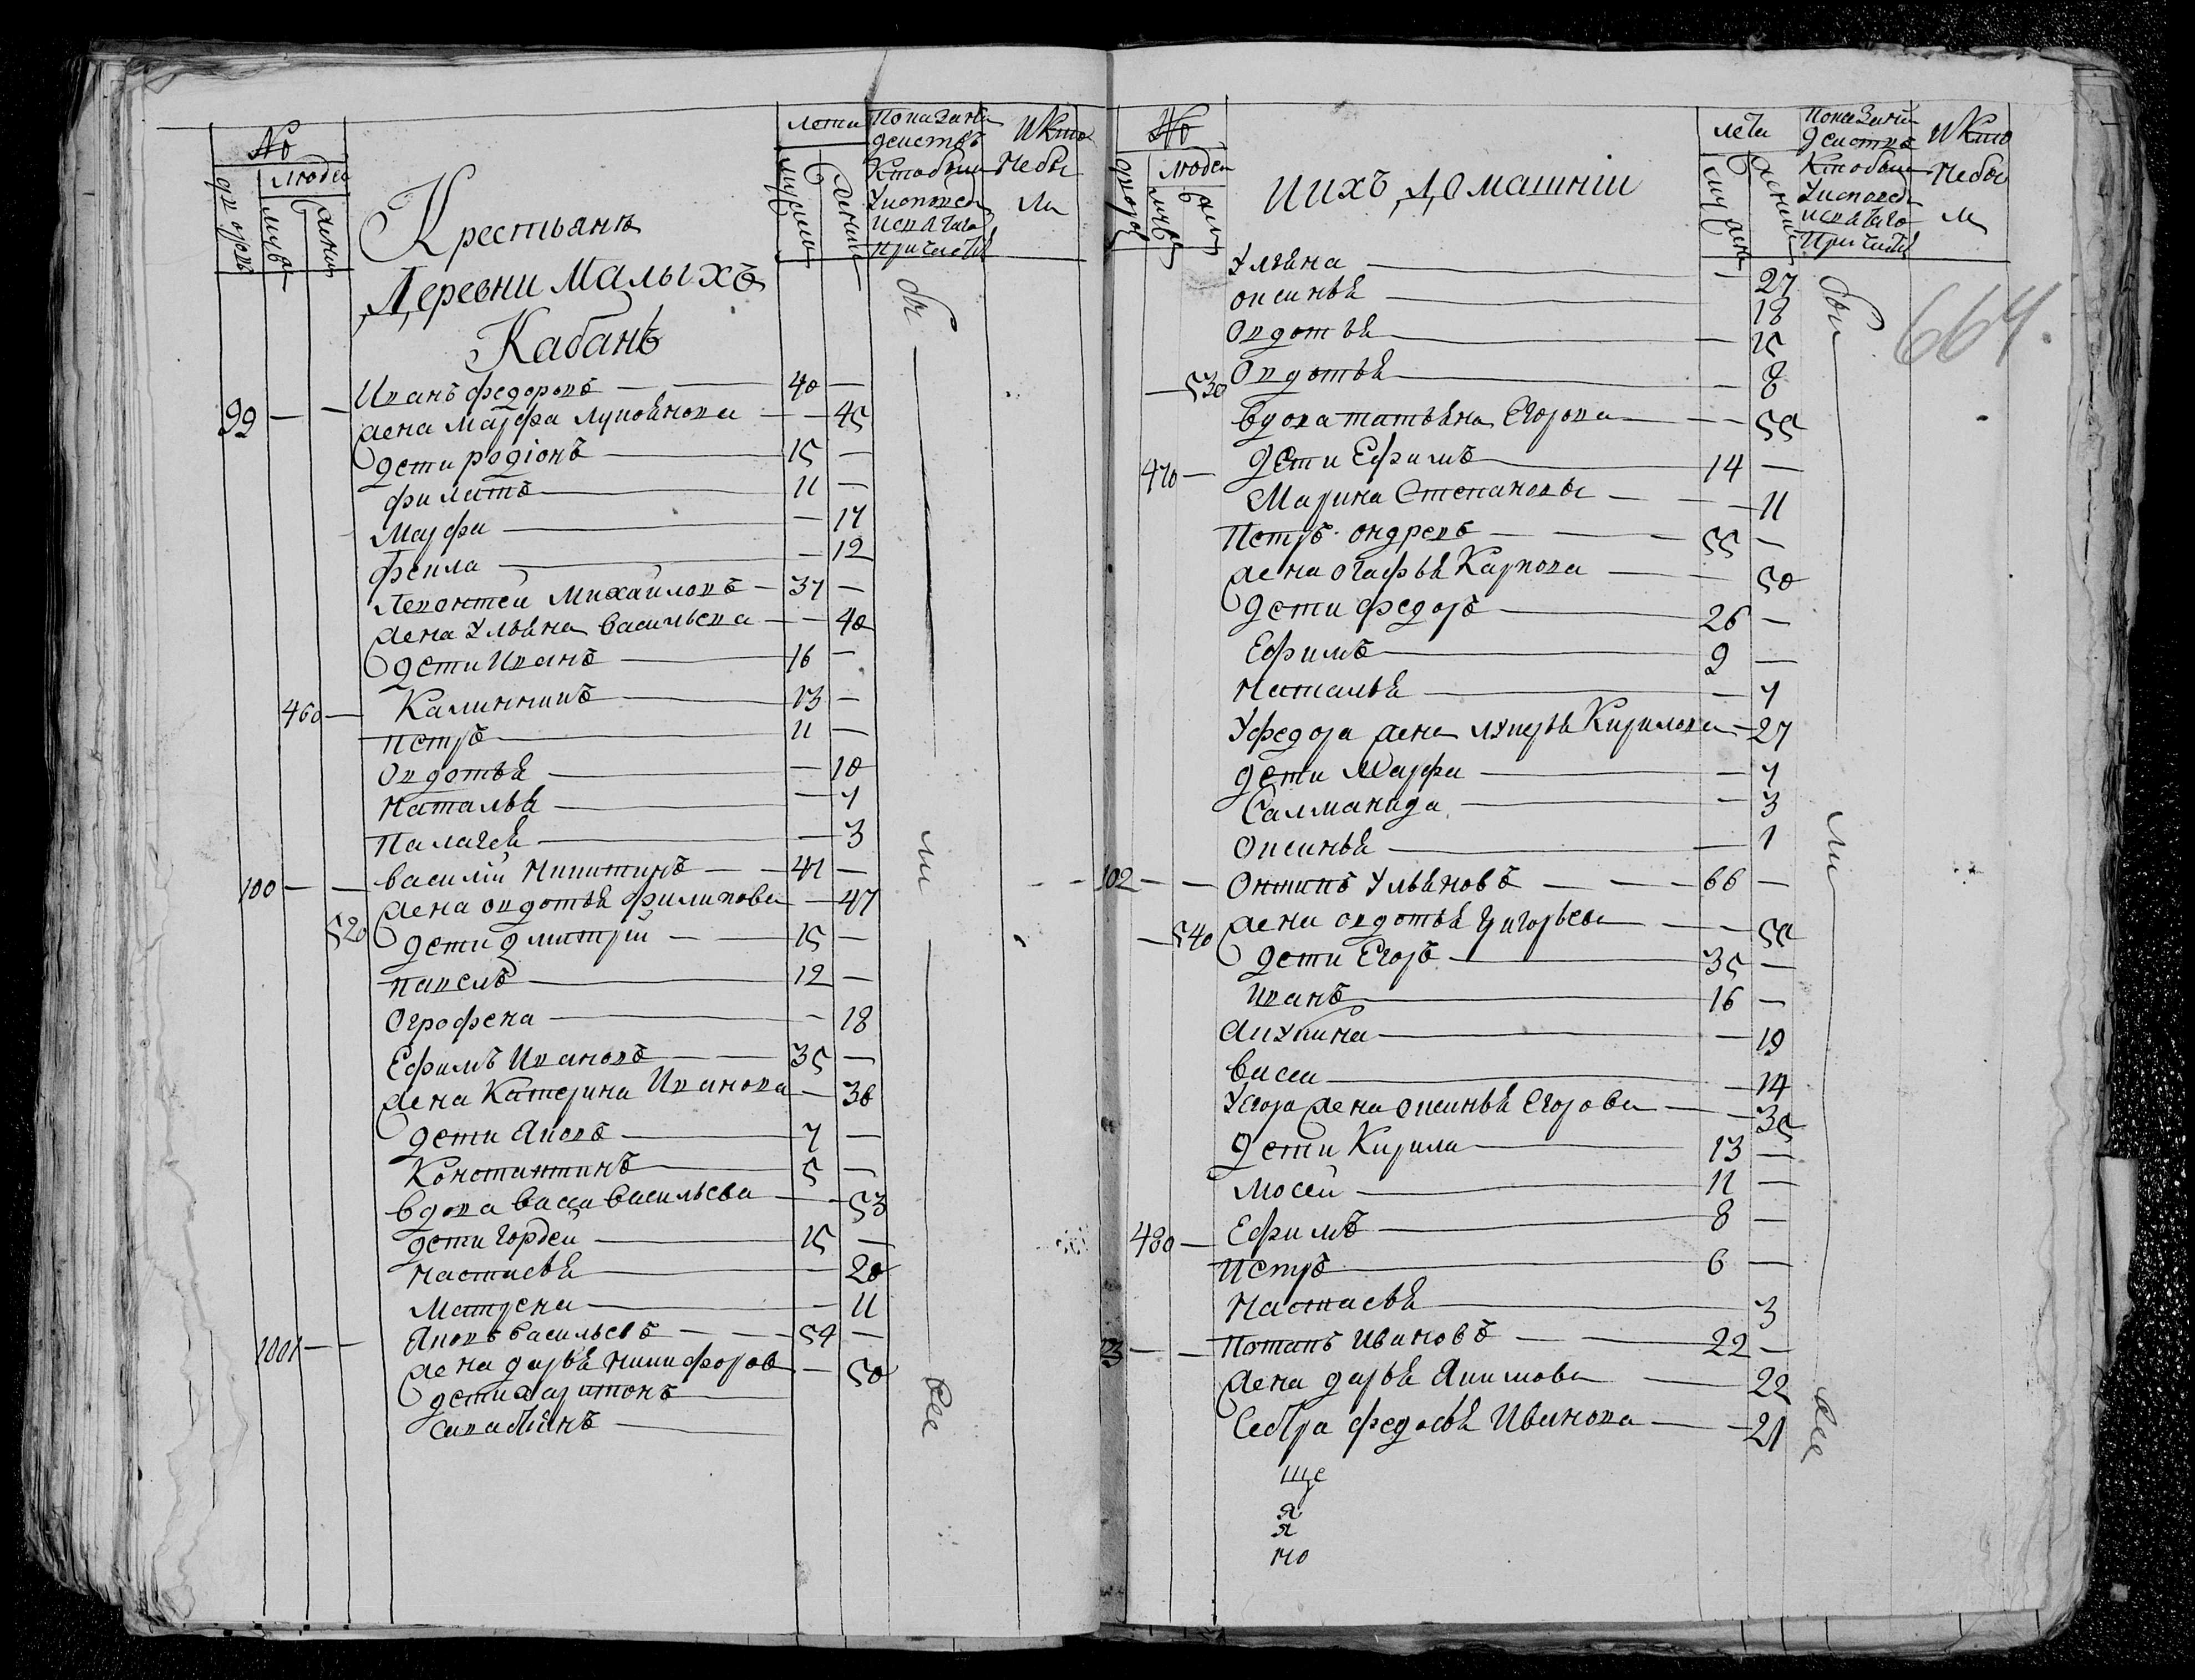 №
Людей
дворовъ
мужс
женс
Лета
мужска
женска
Показани
действъ
Кто были
У исповеди
и святаго
Причастия
И Кто
Не бы
ли
Крестьяне
Деревни Малыхъ
Кабанъ
99 — — Иванъ федоровъ — — 40 —
жена Марфа лупоянова — — 45
дети родіонъ — 15 —
филатъ — 11 —
Марфа — — 17
Фекла — — 12
Левонтей Михайловъ — 37 —
жена Ульяна васильева — — 40
дети Иванъ — 16 —
460 — Калинникъ — 13 —
петръ — 11 —
Овдотья — — 10
Наталья — — 7
Палагея — — 3
100 — — василій Никитинъ — — 41 —
жена овдотья филипова — 47
520 дети дмитрій — — 15 —
павелъ — 12 —
Огрофена — — 18
Ефимъ Ивановъ — — 35 —
жена Катерина Иванова — 36
дети Яковъ — 7 —
Константинъ — 5 —
вдова васса васильева — — 53
дети гордей — 15 —
Настасья — — 20
Матрена — — 11
1001 — — Яковъ васильевъ — — 54 —
жена дарья никифоров — 50
дети харитонъ —
савастьянъ —
бы
ли
все
№
Людей
дворов
мужс
женс
и ихъ домашніи
лета
мужска
женска
показании
действъ
Кто были
У исповеди
и святаго
Причастия
И Кто
Не бы
ли
664.
Ульяна — — 27
оксинья — 18
Овдотья — — 15
— 530 Овдотья — — 8
вдова татьяна Егорова — — 55
470 — дети Ефимъ — 14 —
Марина Степановы — — 11
Петръ ондревъ — — 55 —
жена огафья Карпова — — 50
дети федоръ — 26 —
Ефимъ — 9 —
Наталья — — 7
У федора жена лукерья Кирилова — 27
дети Марфа — — 7
Салманида — — 3
Оксинья — — 1
102 — — Онтипъ Ульяновъ — — 66 —
— 540 жена овдотья григорьева — — 50
дети Егоръ — 35 —
Иванъ — 16 —
Акулина — — 19
васса — — 14
У Егора жена оксинья Егорова — — 35
дети Кирила — 13 —
Мосей — 11 —
480 — Ефимъ — 8 —
петръ — 6 —
Настасья — 3
03 — — Потапъ Ивановъ — — 22 —
жена дарья Акимова — 22
Сестра федосья Иванова — — 21
ще
я
я
но
бы
ли
все